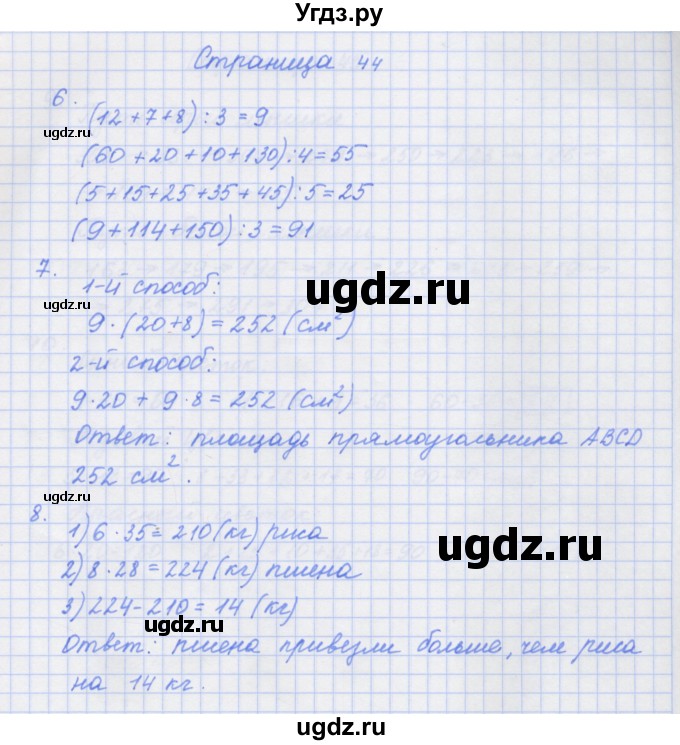 Угдз.ру
Страница 44
6.
(12+7+8):3=9
ugdz.ru
(60+20+10+130):4=55
(5+15+25+35+45):5=25
ugdz.ru
(9+114+150):3=91
7.
1-й способ:
ugdz.ru
ugdz.ru
9·(20+8)=252(см²)
2-й способ:
ugdz.ru
9·20+9·8=252(см²)
Ответ: площадь прямоугольника ABCD
252 см².
ugdz.ru
8.
1) 6·35=210(кг) риса
ugdz.ru
2) 8·28=224(кг) пшена
3) 224-210=14(кг)
ugdz.ru
Ответ: пшена привезли больше, чем риса
на 14 кг.
ugdz.ru